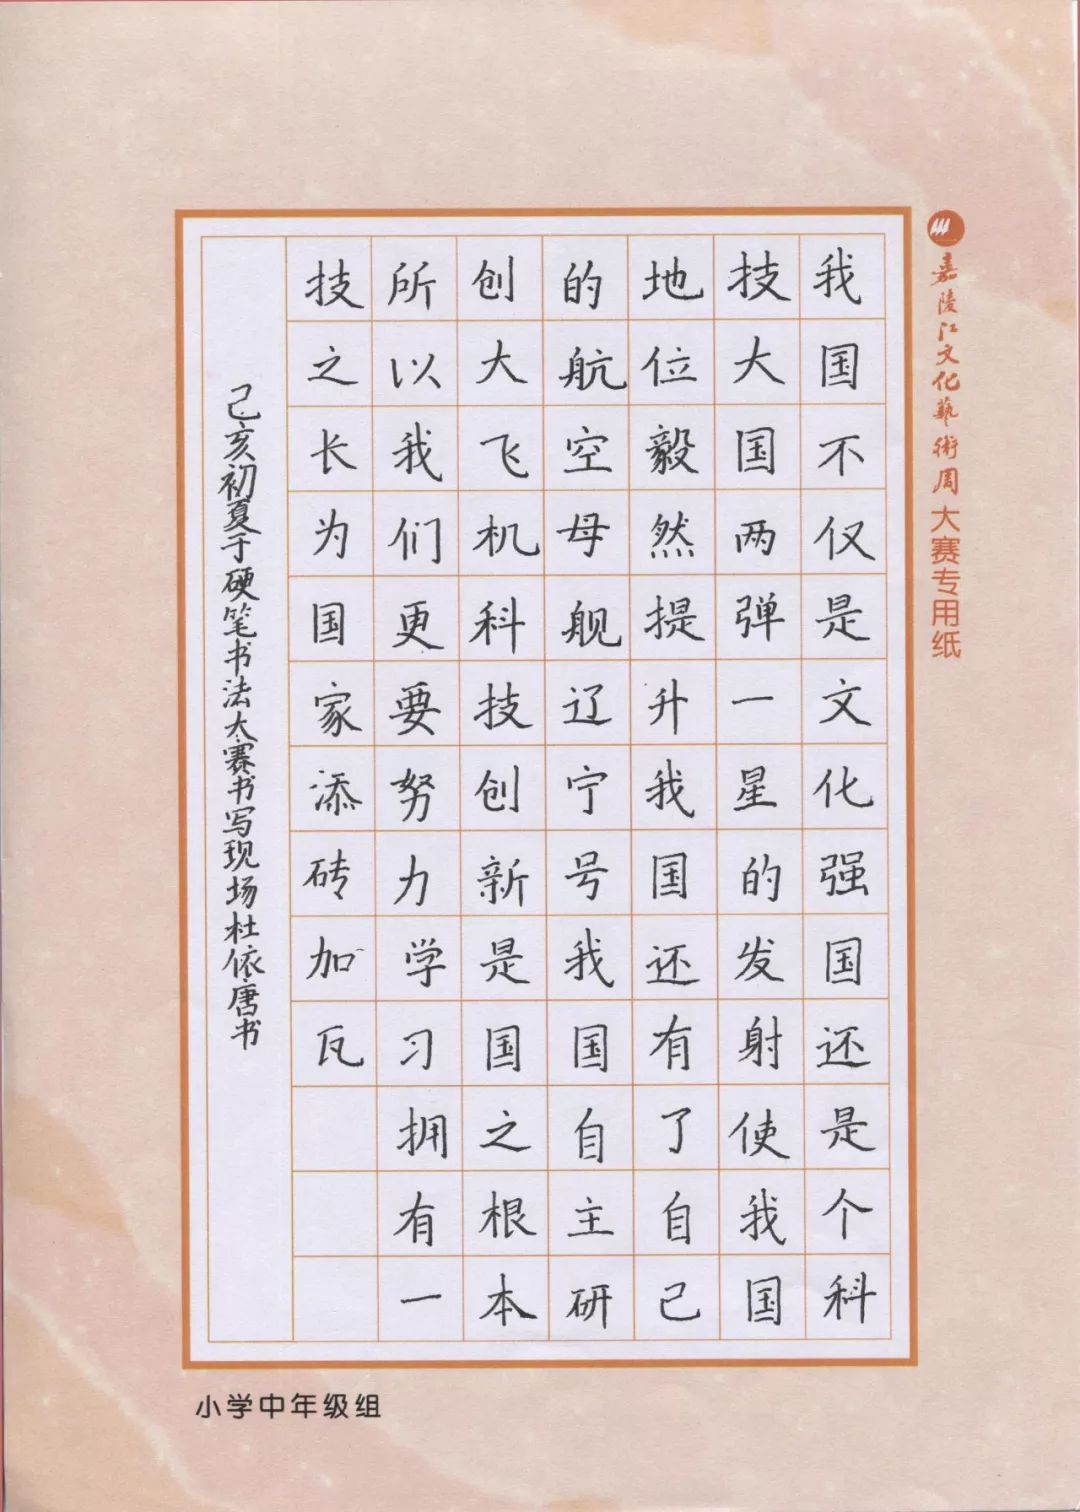 嘉陵江文化藝術周大赛专用纸
我国不仅是文化强国还是个科
技大国两弹一星的发射使我国
地位毅然提升我国还有了自己
的航空母舰辽宁号我国自主研
创大飞机科技创新是国之根本
所以我们更要努力学习拥有一
技之长为国家添砖加瓦
己亥初夏于硬笔书法大赛书写现场杜依唐书
小学中年级组